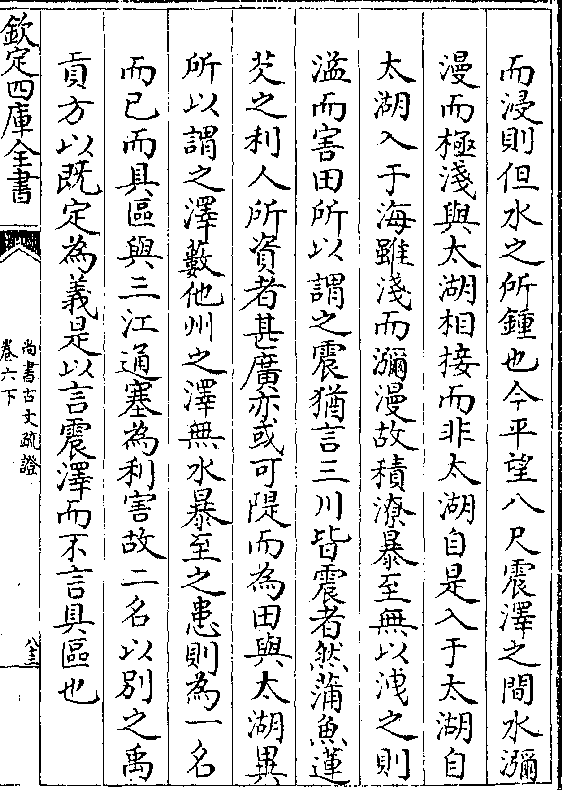 而浸則但水之所鍾也今平望八尺震澤之間水瀰
漫而極淺與太湖相接而非太湖自是入于太湖自
太湖入于海雖淺而瀰漫故積潦暴至無以洩之則
溢而害田所以謂之震猶言三川皆震者然蒲魚蓮
芡之利人所資者甚廣亦或可隄而為田與太湖異
所以謂之澤藪他州之澤無水暴至之患則為一名
而已而具區與三江通塞為利害故二名以別之禹
貢方以既定為義是以言震澤而不言具區也
欽定四庫全書
尚書古文疏證
卷六下
八十三